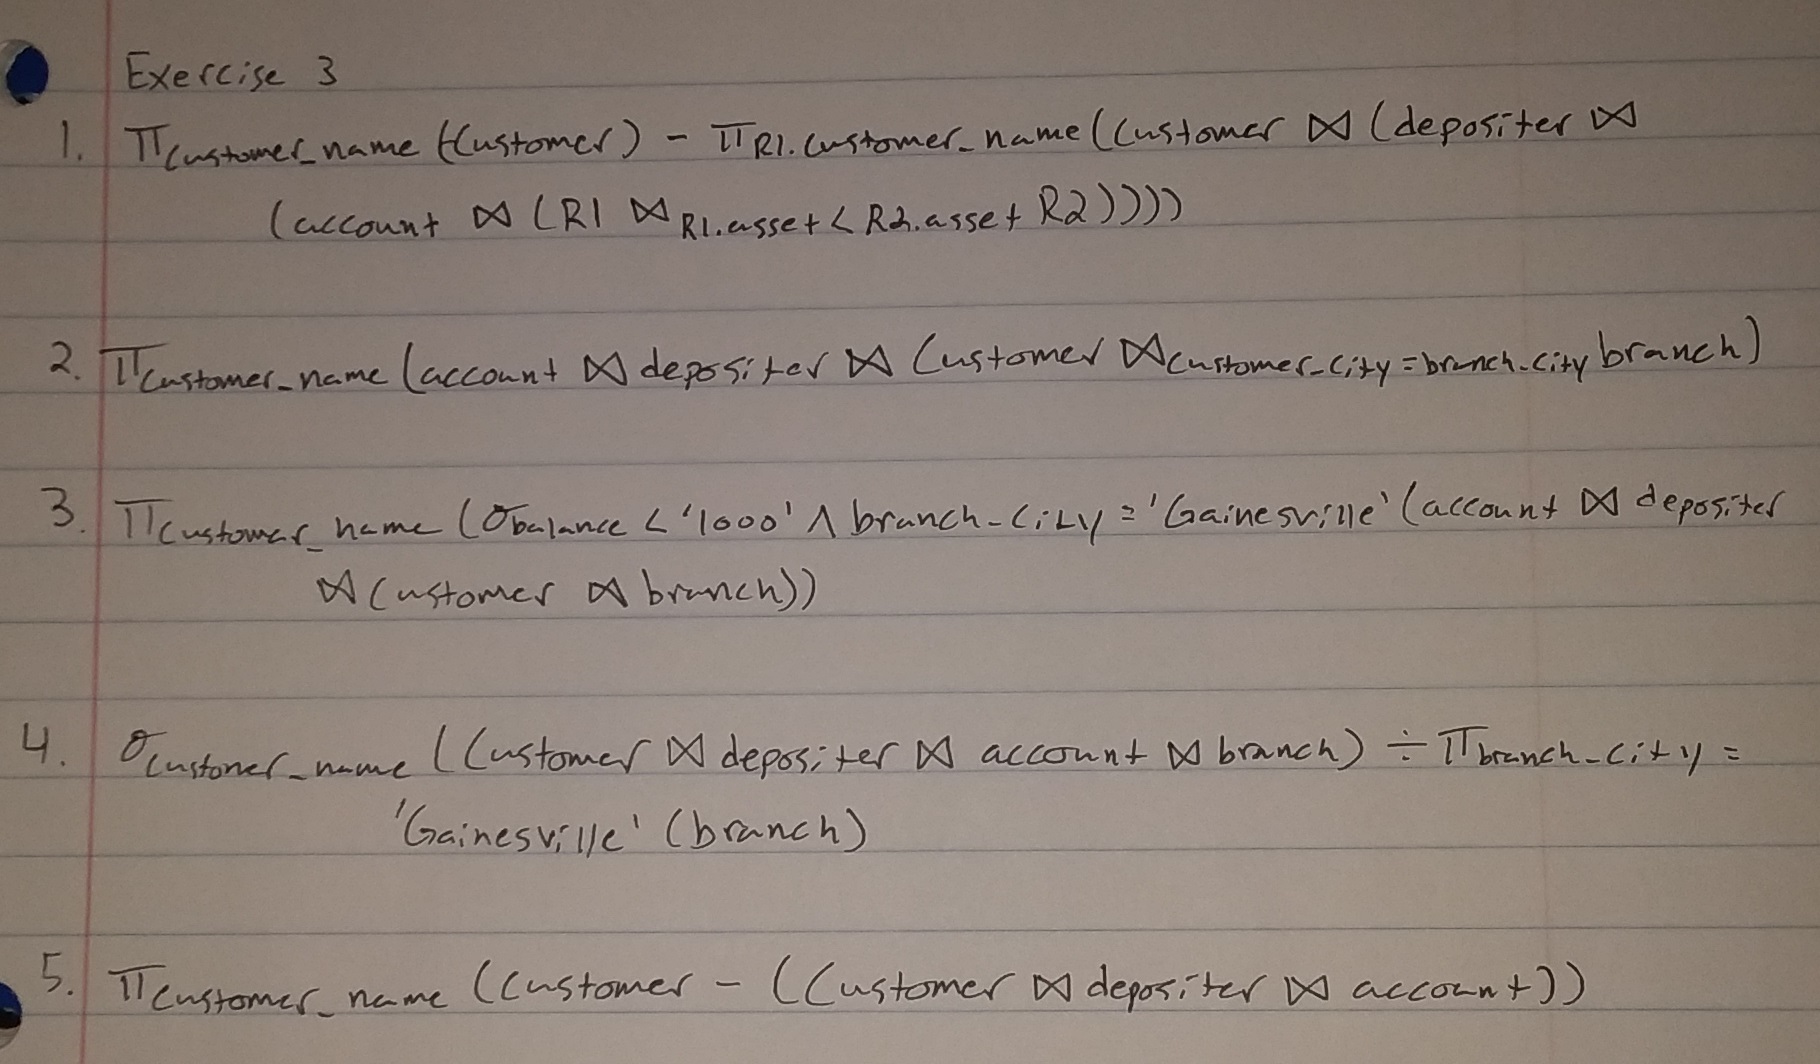 Exercise 3
1. π customer_name (Customer) - π R1.customer_name (Customer ⋈ (depositer ⋈
(account ⋈ (R1 ⋈ R1.asset < R2.asset R2))))
2. π customer_name (account ⋈ depositer ⋈ (ustomer ⋈ customer_city = branch_city branch)
3. π customer_name (σ balance < '1000' ∧ branch_city = 'Gainesville' (account ⋈ depositer
⋈ (ustomer ⋈ branch))
4. σ customer_name ((ustomer ⋈ depositer ⋈ account ⋈ branch) ÷ π branch_city =
'Gainesville' (branch)
5. π customer_name (Customer - ((ustomer ⋈ depositer ⋈ account))